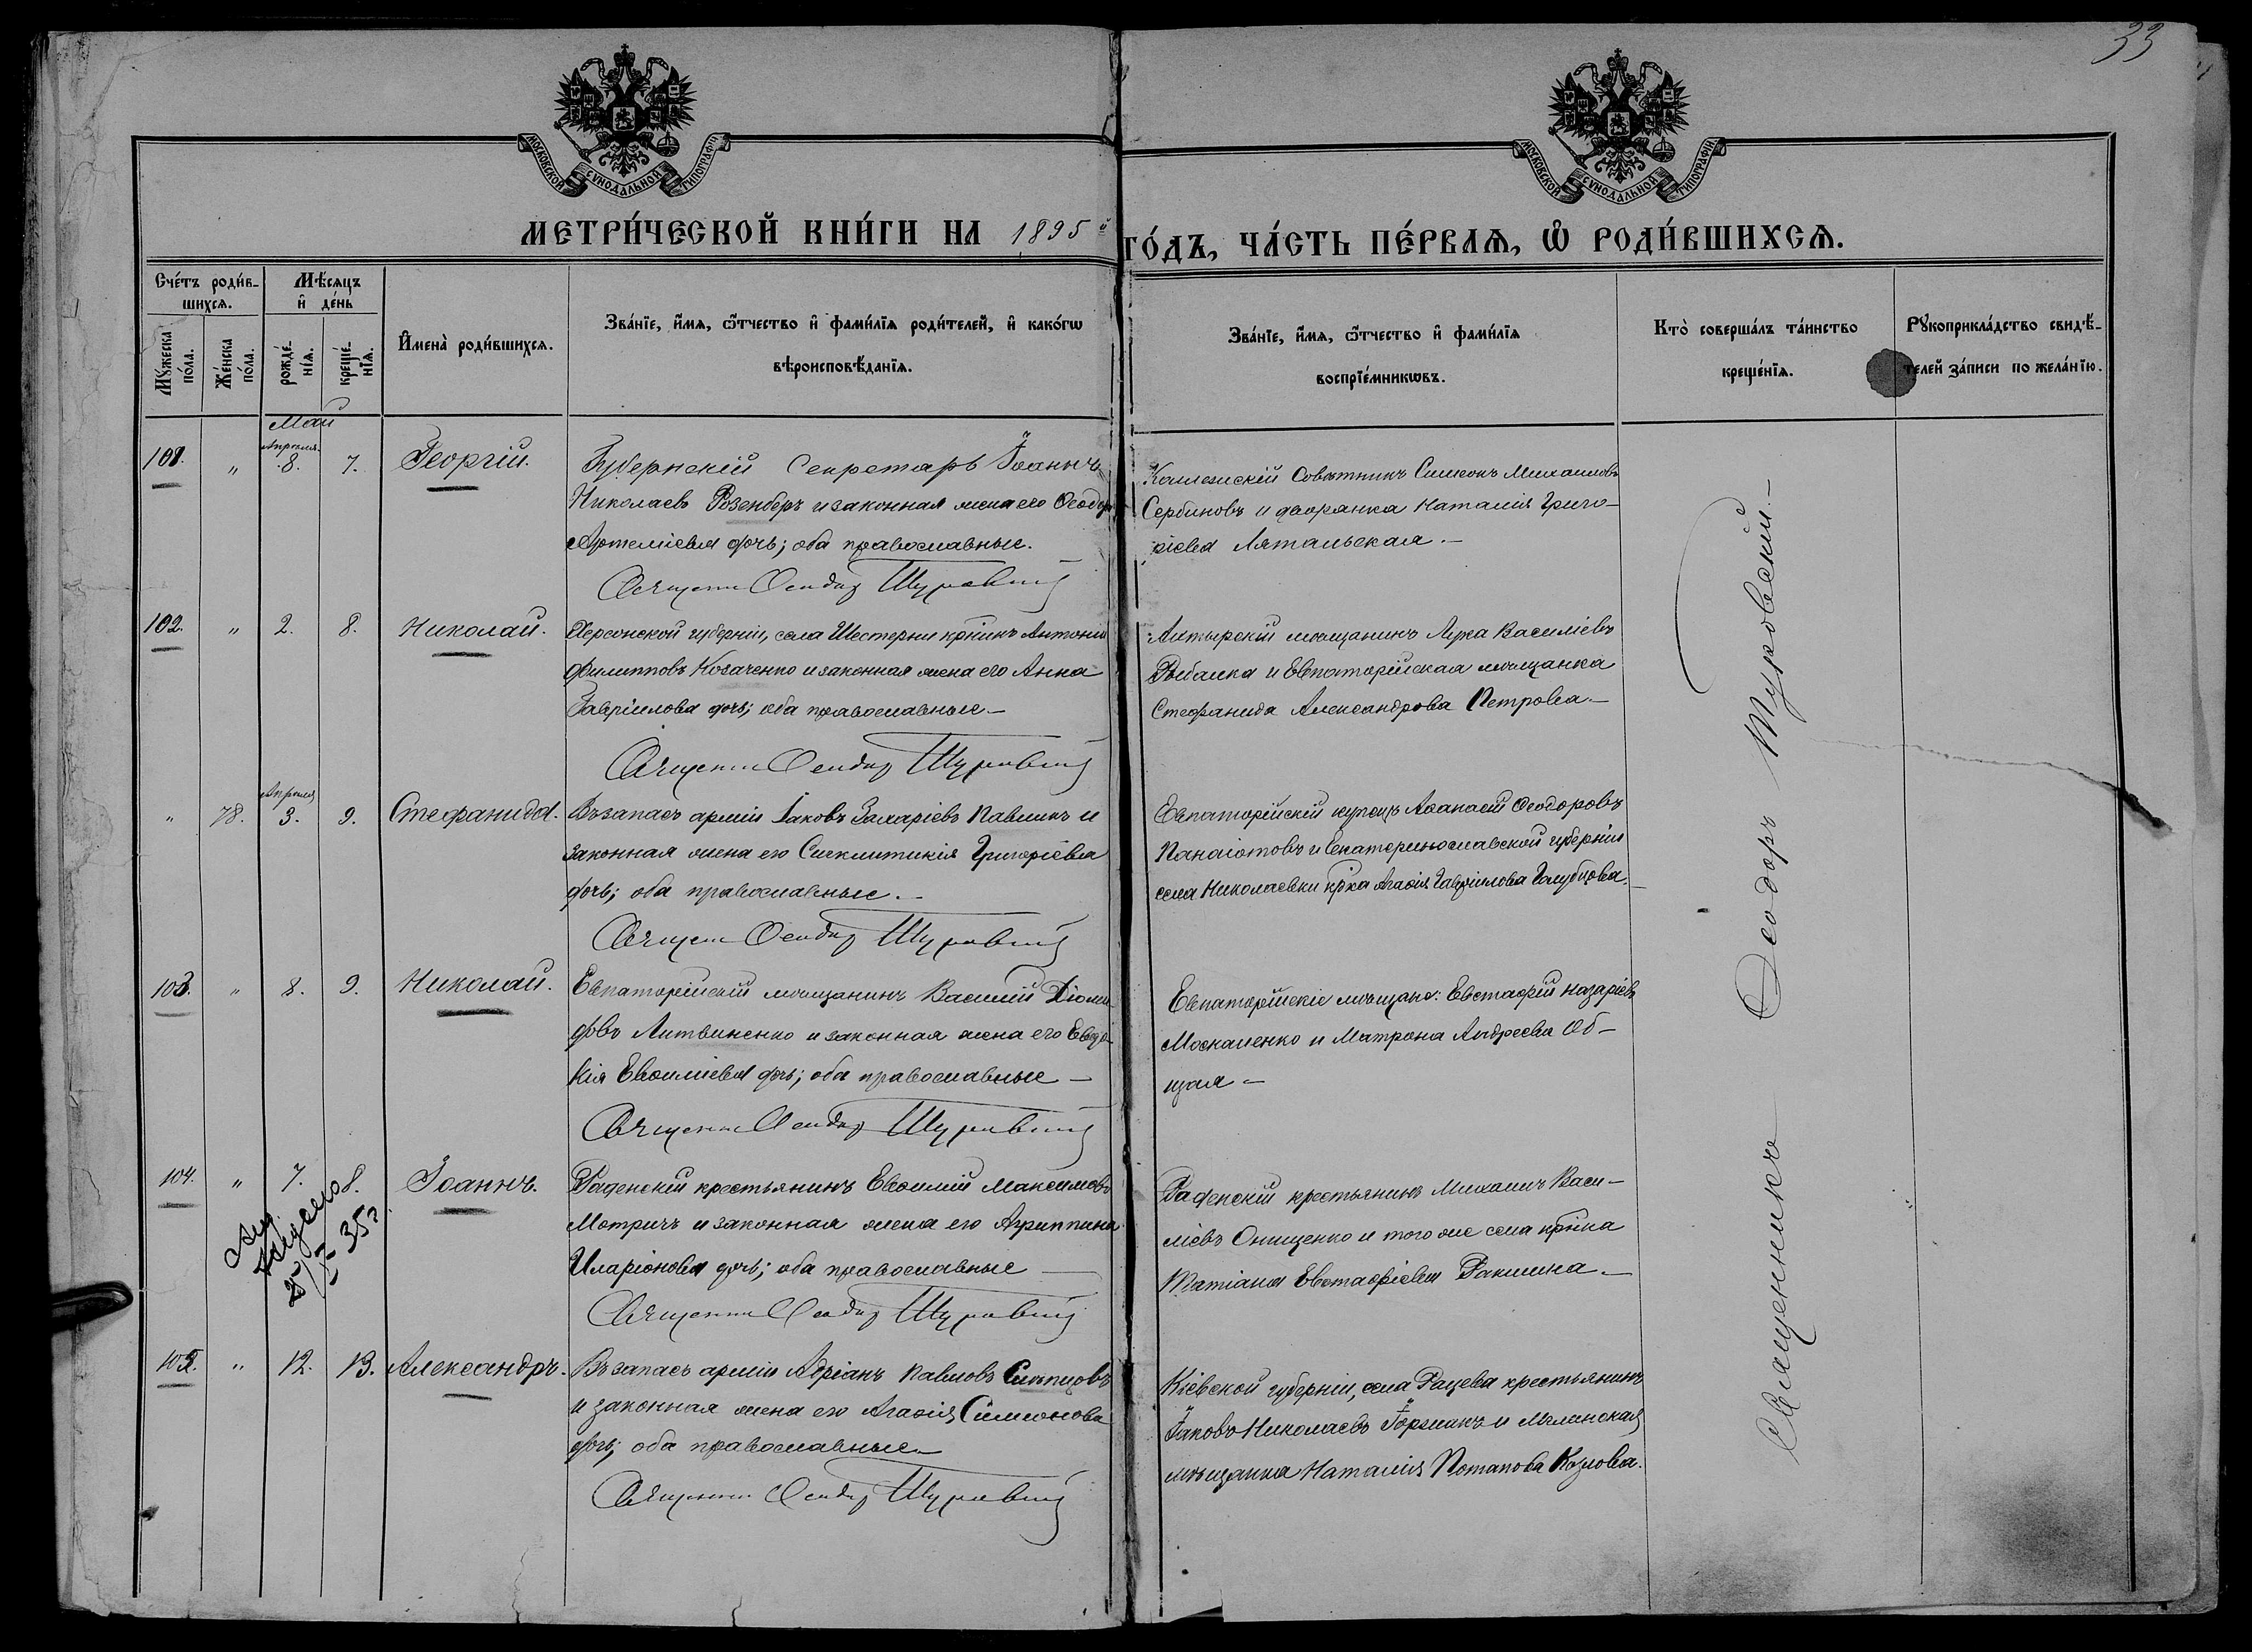 33
МОСКОВСКОЙ СѴНОДАЛЬНОЙ ТИПОГРАФІИ
МОСКОВСКОЙ СѴНОДАЛЬНОЙ ТИПОГРАФІИ
МЕТРИ́ЧЕСКОЙ КНИ́ГИ НА 1895й ГО́ДЪ, ЧА́СТЬ ПЕ́РВАѦ, Ѡ҆ РОДИ́ВШИХСѦ.
Сче́тъ роди́в-
шихсѧ.
Мꙋжеска
по́ла.
Же́нска
по́ла.
Мѣ́сѧцъ
и҆ де́нь
рожде́-
нїѧ.
креще́-
нїѧ.
И҆мена̀ роди́вшихсѧ.
Зва́нїе, и҆́мѧ, ѻ҆́тчество и҆ фами́лїѧ роди́телей, и҆ како́гѡ
вѣроисповѣ́данїѧ.
Зва́нїе, и҆́мѧ, ѻ҆́тчество и҆ фами́лїѧ
воспрїе́мникѡвъ.
Кто̀ соверша́лъ та́инство
креще́нїѧ.
Рꙋкоприкла́дство свидѣ́-
телей за́писи по жела́нїю.
Май
101. " Апрѣля 8. 7. Георгій.
Губернскій Секретарь Іоаннъ
Николаевъ Розенберъ и законная жена его Ѳеодор
Артеміева дочь; оба православные.
Священн Ѳеодор Туровскій
Коллежскій Совѣтникъ Симеонъ Михаиловъ
Сербиновъ и дворянка Наталія Григо-
ріева Лятальская.—
102. " 2. 8. Николай.
Херсонской губерніи, села Шестерни кр̃нинъ Антоній
Филипповъ Козаченко и законная жена его Анна
Гавріилова дочь; оба православные—
Священн Ѳеодор Туровскій
Ахтырскій мѣщанинъ Лука Василіевъ
Рыбалка и Евпаторійская мѣщанка
Стефанида Александрова Петрова.—
" 78. Апрѣля 3. 9. Стефанида.
Въ запасѣ арміи Іаковъ Захаріевъ Павликъ и
законная жена его Сигклитикія Григоріева
дочь; оба православные.—
Священ Ѳеодор Туровскій
Евпаторійскій купецъ Аѳанасій Ѳеодоровъ
Панаіотовъ и Екатеринославской губерніи
села Николаевки кр̃ка Агаѳія Гавріилова Голубцова.—
103. " 8. 9. Николай.
Евпаторійскій мѣщанинъ Василій Діоми-
довъ Литвиненко и законная жена его Евдо-
кія Евѳиміева дочь; оба православные—
Священн Ѳеодор Туровскій
Евпаторійскіе мѣщане: Евстафій Назаріевъ
Москаленко и Матрона Андреева Об-
щая—
104. " 7. 8. Іоаннъ.
25/X 35
Раденскій крестьянинъ Евѳимій Максимовъ
Мотричъ и законная жена его Агриппина
Иларіонова дочь; оба православные—
Священн Ѳеодор Туровскій
Раденскій крестьянинъ Михаилъ Васи-
ліевъ Онищенко и того же села кр̃нка
Татіана Евстафіева Ракшина.—
105. " 12. 13. Александръ.
Въ запасѣ арміи Адріанъ Павловъ Слѣпцовъ
и законная жена его Агаѳія Симеонова
дочь; оба православные.—
Священн Ѳеодор Туровскій
Кіевской губерніи, села Рацева крестьянинъ
Іаковъ Николаевъ и Мглинская
мѣщанка Наталія Потапова Козлова.
Священникъ Ѳеодоръ Туровскій.—